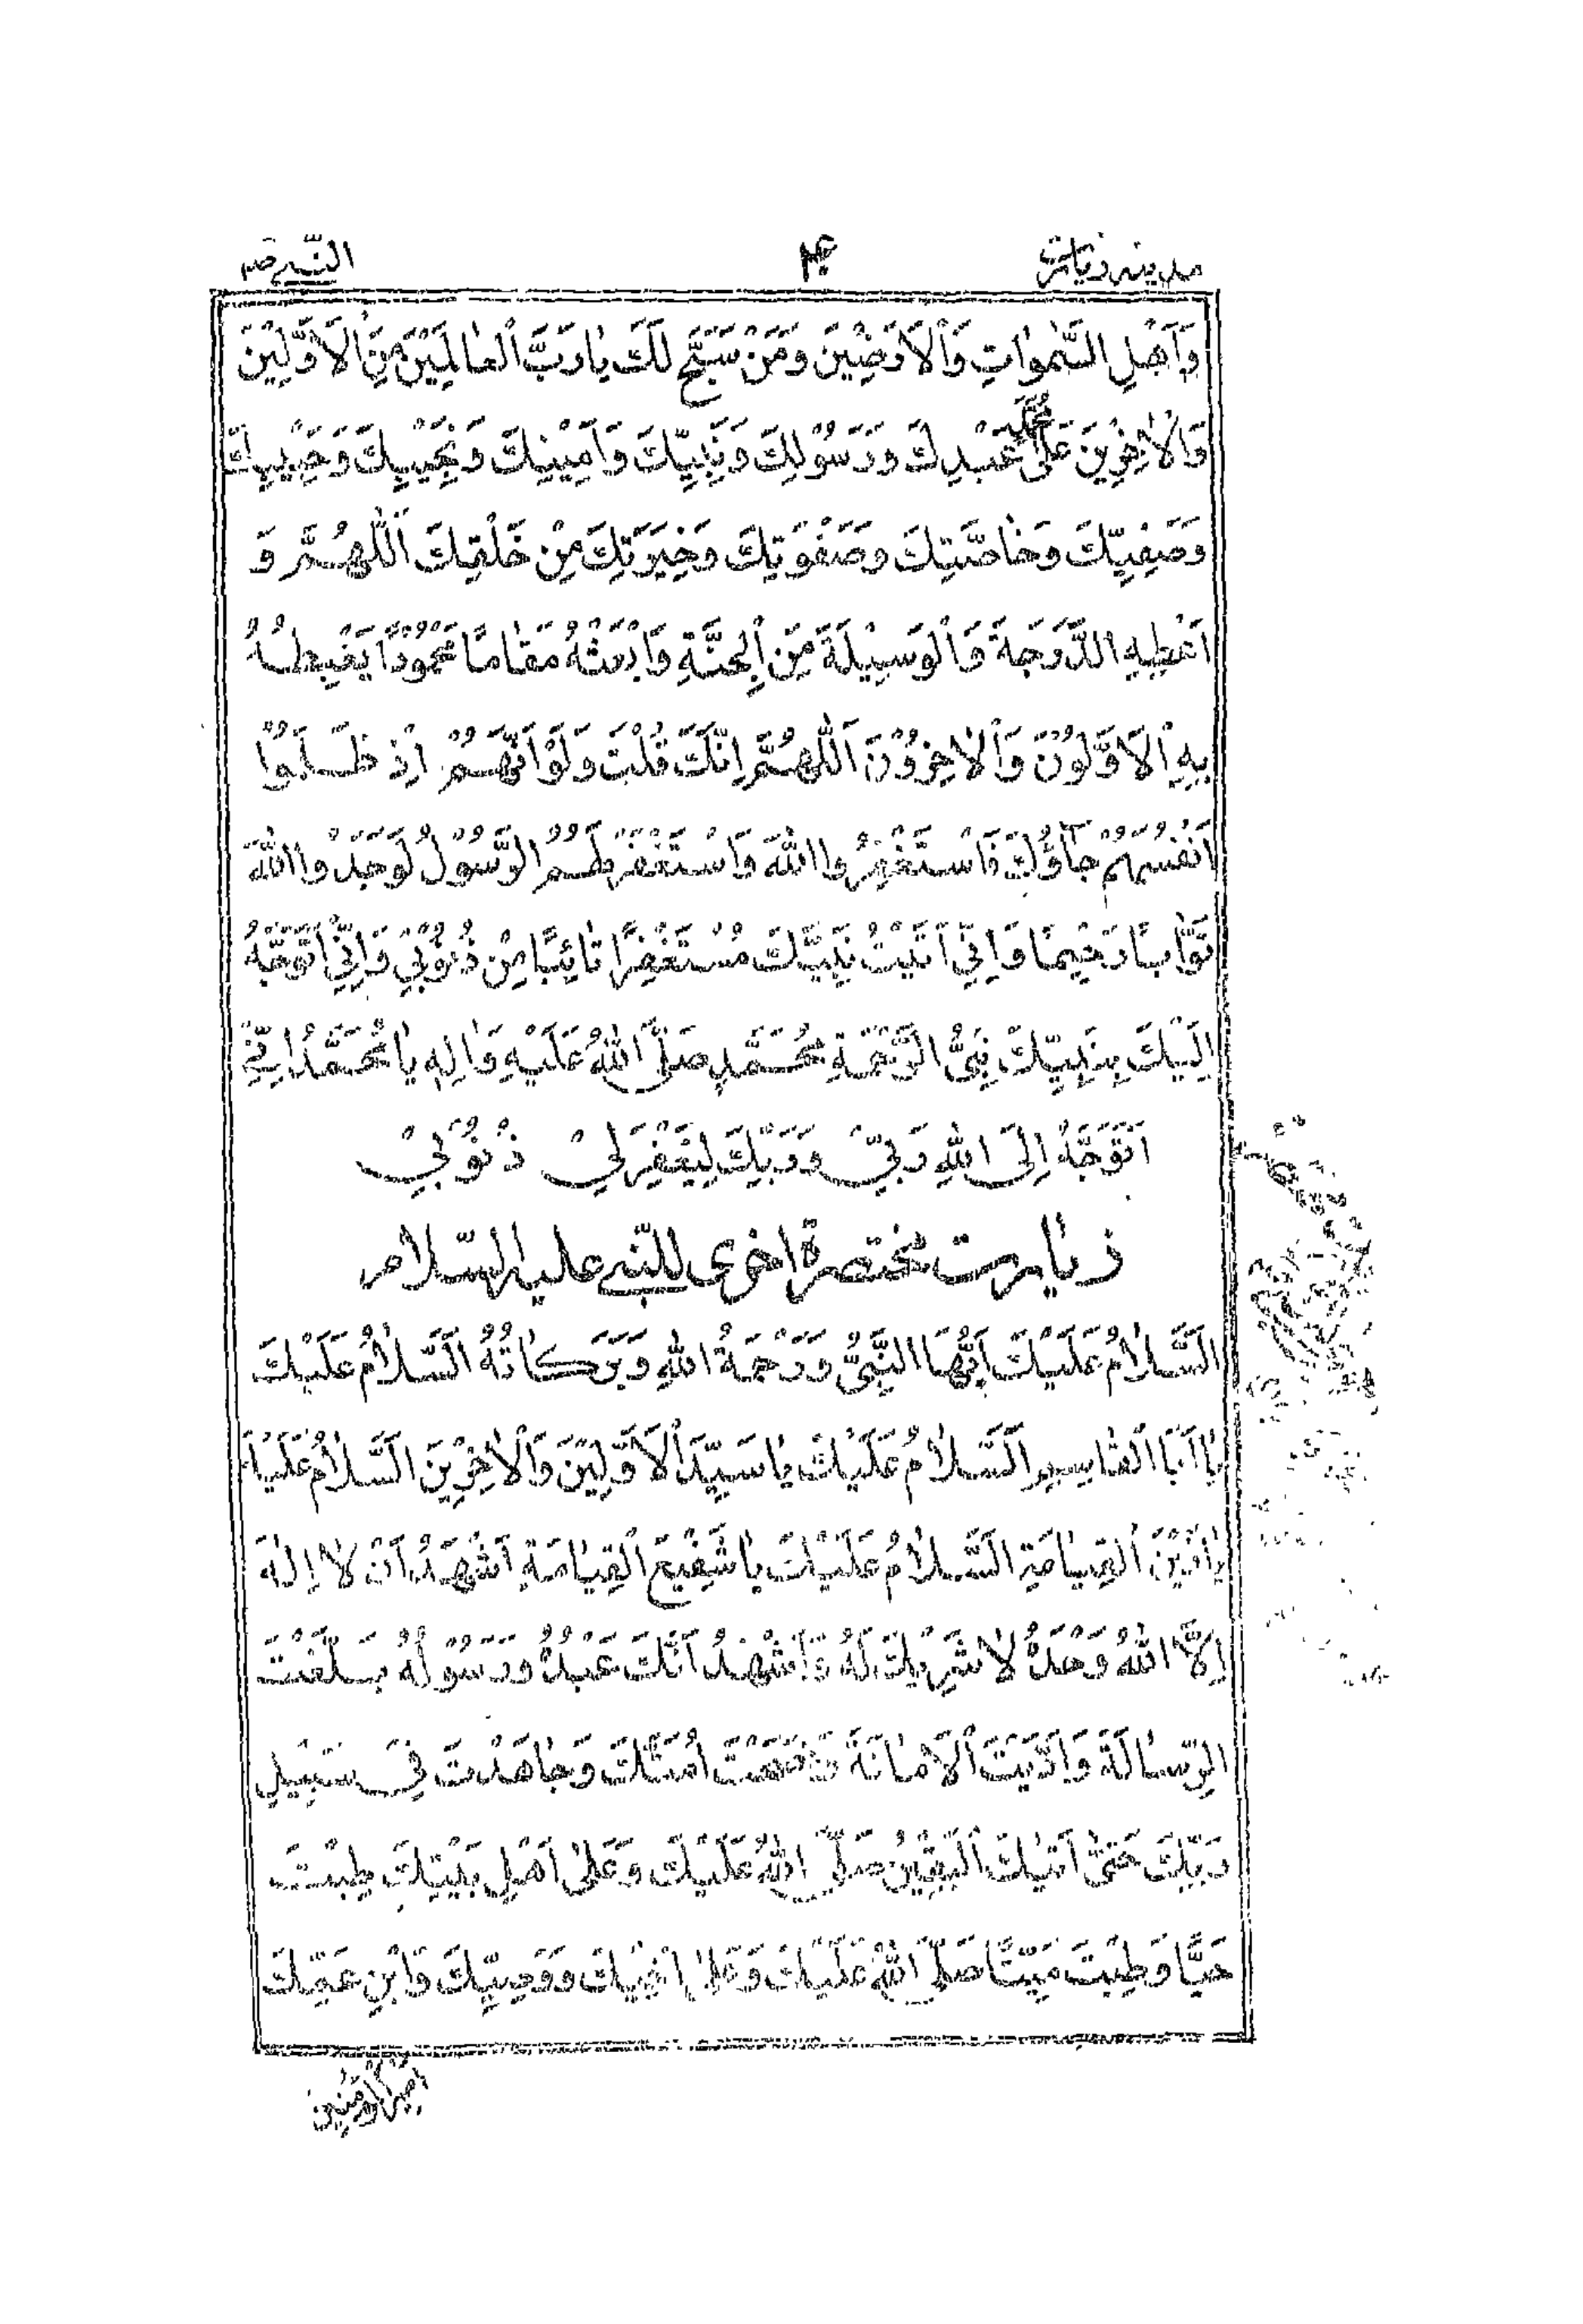 مدينه زيارة ۴ النّبي ص
وَاَهْلِ السَّمٰوٰاتِ وَالْاَرَضِيْنَ وَمَنْ سَبَّحَ لَكَ يٰا رَبَّ الْعٰالَمِيْنَ مِنَ الْاَوَّلِيْنَ
وَالْاٰخِرِيْنَ عَلىٰ مُحَمَّدٍ عَبْدِكَ وَرَسُوْلِكَ وَنَبِيِّكَ وَاَمِيْنِكَ وَنَجِيْبِكَ وَحَبِيْبِكَ
وَصَفِيِّكَ وَخٰاصَّتِكَ وَصَفْوَتِكَ وَخِيَرَتِكَ مِنْ خَلْقِكَ اَللّٰهُمَّ وَ
اَعْطِهِ الدَّرَجَةَ وَالْوَسِيْلَةَ مِنَ الْجَنَّةِ وَابْعَثْهُ مَقٰامًا مَحْمُوْدًا يَغْبِطُهُ
بِهِ الْاَوَّلُوْنَ وَالْاٰخِرُوْنَ اَللّٰهُمَّ اِنَّكَ قُلْتَ وَلَوْ اَنَّهُمْ اِذْ ظَلَمُوْا
اَنْفُسَهُمْ جٰآؤُكَ فَاسْتَغْفَرُوا اللّٰهَ وَاسْتَغْفَرَ لَهُمُ الرَّسُوْلُ لَوَجَدُوا اللّٰهَ
تَوَّابًا رَحِيْمًا وَاِنِّيْ اَتَيْتُ نَبِيَّكَ مُسْتَغْفِرًا تٰائِبًا مِنْ ذُنُوْبِيْ وَاِنِّيْ اَتَوَجَّهُ
اِلَيْكَ بِنَبِيِّكَ نَبِيِّ الرَّحْمَةِ مُحَمَّدٍ صَلَّى اللّٰهُ عَلَيْهِ وَاٰلِهِ يٰا مُحَمَّدُ اِنِّيْ
اَتَوَجَّهُ اِلَى اللّٰهِ رَبِّيْ وَرَبِّكَ لِيَغْفِرَ لِيْ ذُنُوْبِيْ
زيارت مختصرة اخرى للنّبي عليه السّلام
اَلسَّلٰامُ عَلَيْكَ اَيُّهَا النَّبِيُّ وَرَحْمَةُ اللّٰهِ وَبَرَكٰاتُهُ اَلسَّلٰامُ عَلَيْكَ
يٰا اَبَا الْقٰاسِمِ اَلسَّلٰامُ عَلَيْكَ يٰا سَيِّدَ الْاَوَّلِيْنَ وَالْاٰخِرِيْنَ اَلسَّلٰامُ عَلَيْكَ
يٰا زَيْنَ الْقِيٰامَةِ اَلسَّلٰامُ عَلَيْكَ يٰا شَفِيْعَ الْقِيٰامَةِ اَشْهَدُ اَنْ لٰا اِلٰهَ
اِلَّا اللّٰهُ وَحْدَهُ لٰا شَرِيْكَ لَهُ وَاَشْهَدُ اَنَّكَ عَبْدُهُ وَرَسُوْلُهُ بَلَّغْتَ
الرِّسٰالَةَ وَاَدَّيْتَ الْاَمٰانَةَ وَنَصَحْتَ اُمَّتَكَ وَجٰاهَدْتَ فِيْ سَبِيْلِ
رَبِّكَ حَتّٰى اَتٰيكَ الْيَقِيْنُ صَلَّى اللّٰهُ عَلَيْكَ وَعَلىٰ اَهْلِ بَيْتِكَ طِبْتَ
حَيًّا وَطِبْتَ مَيِّتًا صَلَّى اللّٰهُ عَلَيْكَ وَعَلىٰ اَخِيْكَ وَوَصِيِّكَ وَابْنِ عَمِّكَ
اَمِيْرِ الْمُؤْمِنِيْنَ